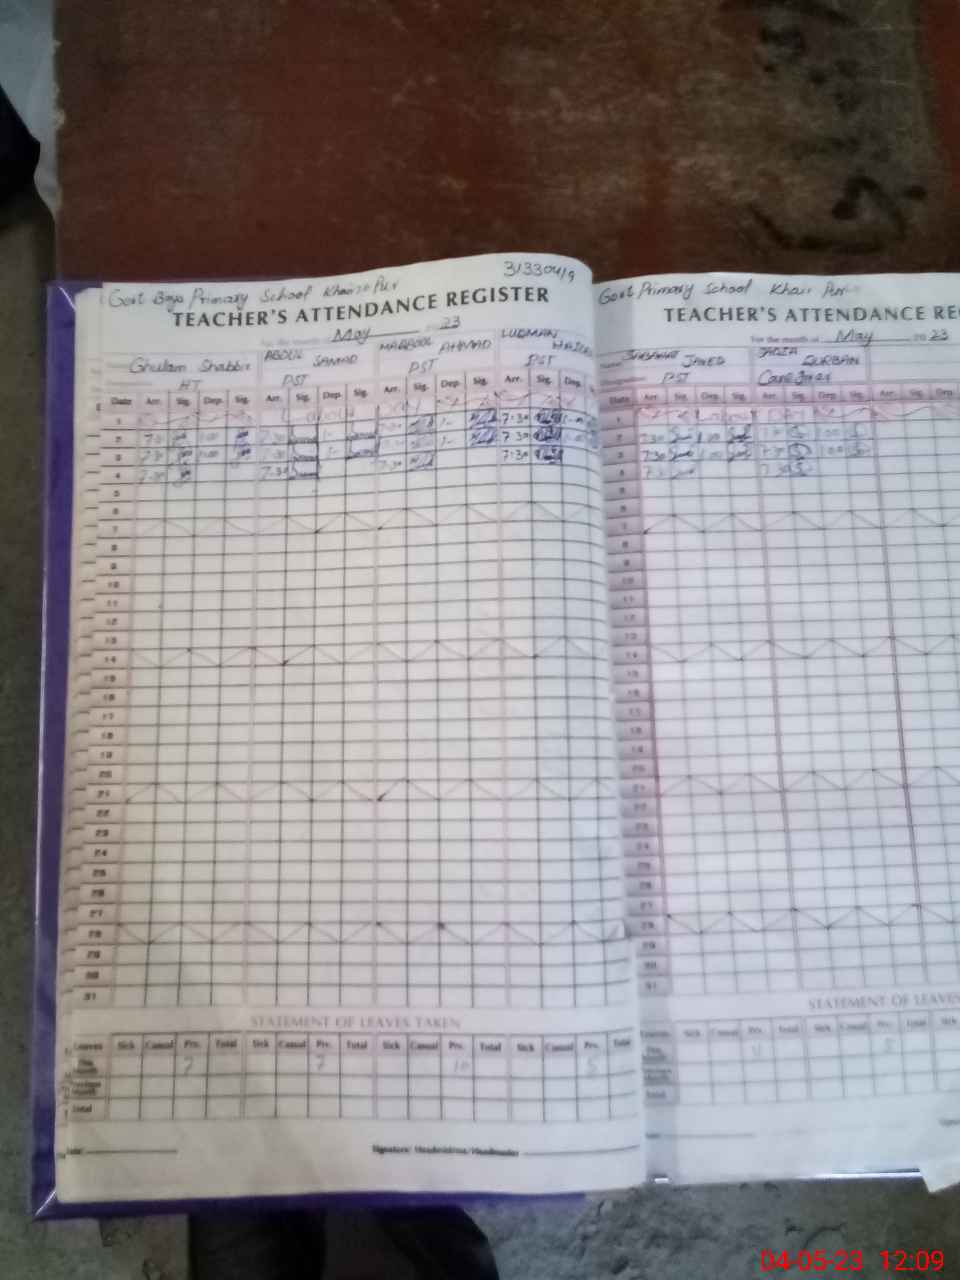 31330419
Govt Boys Primary School Khair Pur
TEACHER'S ATTENDANCE REGISTER
For the month of May 23
Ghulam Shabbir ABDUL SAMAD MAQBOOL AHMAD LUQMAN
HT PST PST PST
Date Arr. Sig. Dep. Sig. Arr. Sig. Dep. Sig. Arr. Sig. Dep. Sig. Arr. Sig. Dep.
1
2 7:30 1:00 7:30 1- 1- 7:30
3 7:30 1:00 7:30 1- 1- 7:30
4 7:30 7:30 7:30 7:30
5
6
7
8
9
10
11
12
13
14
15
16
17
18
19
20
21
22
23
24
25
26
27
28
29
30
31
STATEMENT OF LEAVES TAKEN
Leaves Sick Casual Prv. Total Sick Casual Prv. Total Sick Casual Prv. Total Sick Casual Prv. Total
This Month 7 7 10 5
Previous Month
Total
Date: Signature: Headmistress/Headmaster
Govt Primary School Khair Pur
TEACHER'S ATTENDANCE RE
For the month of May 23
Name JAVED
Designation PST
Date Arr. Sig. Dep. Sig. Arr. Sig. Dep. Sig. Arr. Sig. Dep.
1
2 7:30 1:00 7:30 1:00
3 7:30 1:00 7:30 1:00
4 7:30 7:30
5
6
7
8
9
10
11
12
13
14
15
16
17
18
19
20
21
22
23
24
25
26
27
28
29
30
31
STATEMENT OF LEAVES
Leaves Sick Casual Prv. Total Sick Casual Prv. Total Sick
This Month
Previous Month
Total
04-05-23 12:09